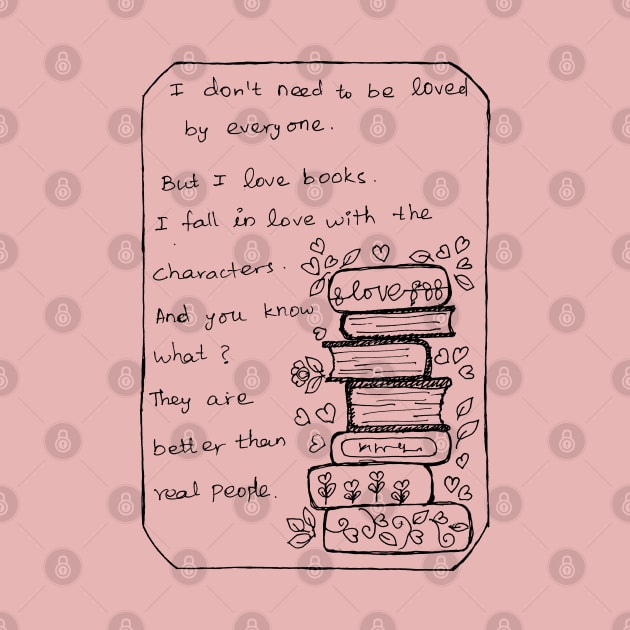 I don't need to be loved
by everyone.
But I love books.
I fall in love with the
characters.
And you know
what?
They are
better than
real people.
love